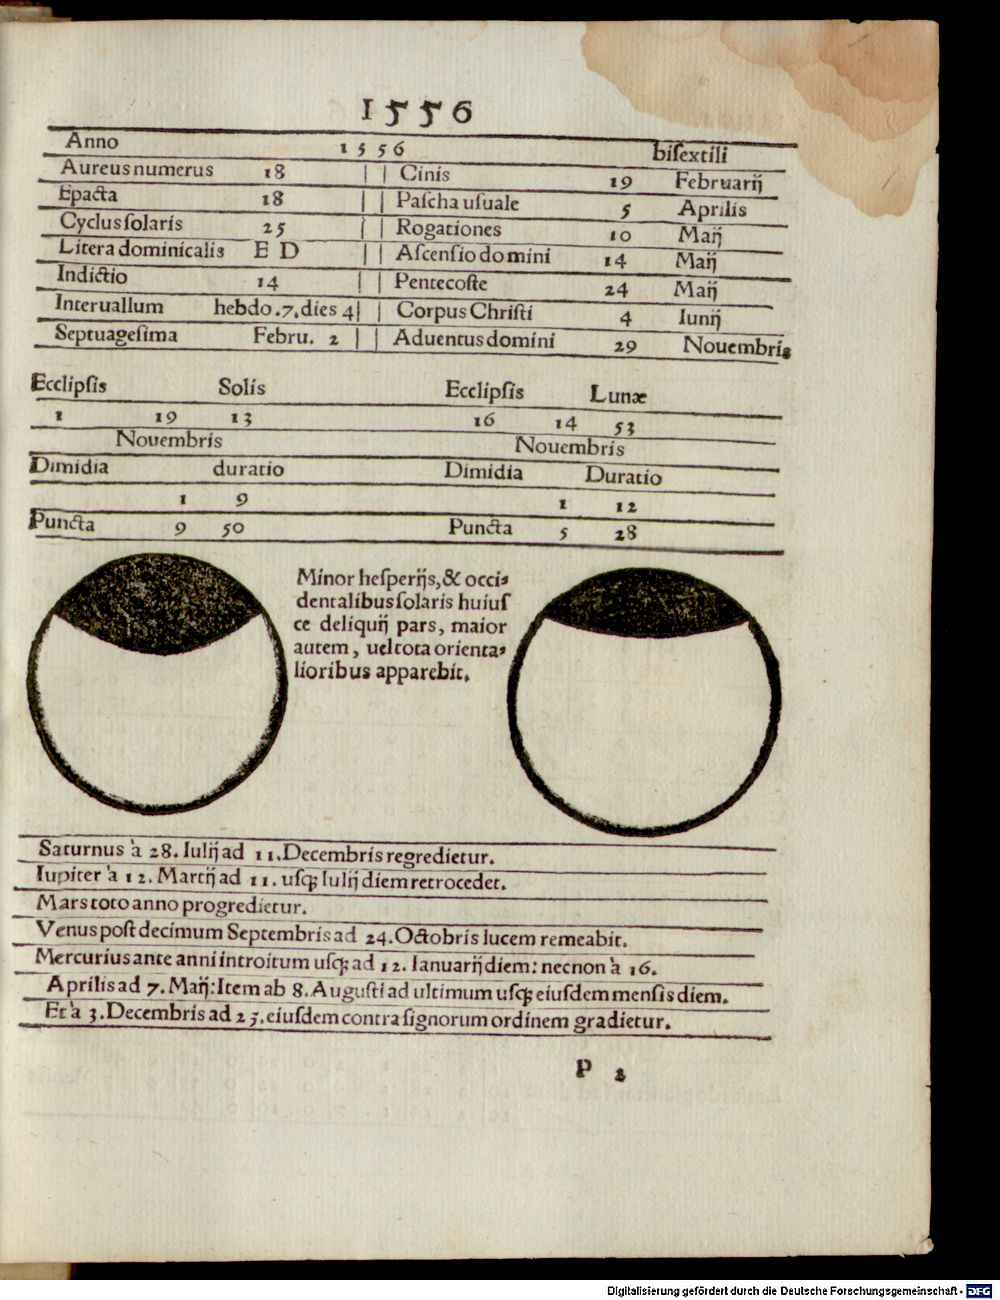 1556
Anno 1556 bisextili
Aureus numerus 18 | | Cinis 19 Februarij
Epacta 18 | | Paſcha uſuale 5 Aprilis
Cyclus ſolaris 25 | | Rogationes 10 Maij
Litera dominicalis E D | | Aſcenſio domini 14 Maij
Indictio 14 | | Pentecoſte 24 Maij
Interuallum hebdo.7.dies 4 | | Corpus Chriſti 4 Iunij
Septuageſima Febru. 2 | | Aduentus domini 29 Nouembris
Ecclipſis Solis Ecclipſis Lunæ
1 19 13 16 14 53
Nouembris Nouembris
Dimidia duratio Dimidia Duratio
1 9 1 12
Puncta 9 50 Puncta 5 28
Minor heſperijs, & occi⸗
dentalibus ſolaris huiuſ
ce deliquij pars, maior
autem, uel tota orienta⸗
lioribus apparebit.
Saturnus à 28. Iulij ad 11. Decembris regredietur.
Iupiter à 12. Martij ad 11. uſqꝫ Iulij diem retrocedet.
Mars toto anno progredietur.
Venus poſt decimum Septembris ad 24. Octobris lucem remeabit.
Mercurius ante anni introitum uſqꝫ ad 12. Ianuarij diem: necnon à 16.
Aprilis ad 7. Maij: Item ab 8. Auguſti ad ultimum uſqꝫ eiuſdem menſis diem.
Et à 3. Decembris ad 25. eiuſdem contra ſignorum ordinem gradietur.
P 2
Digitalisierung gefördert durch die Deutsche Forschungsgemeinschaft - DFG